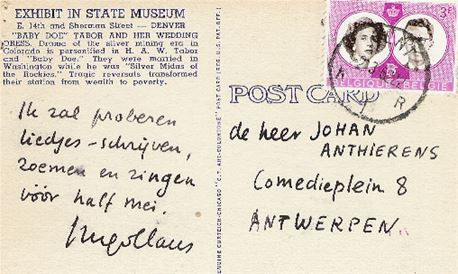 EXHIBIT IN STATE MUSEUM
E. 14th and Sherman Street — DENVER
"BABY DOE" TABOR AND HER WEDDING
DRESS. Drama of the silver mining era in
Colorado is personified in H. A. W. Tabor
and "Baby Doe." They were married in
Washington while he was "Silver Midas of
the Rockies." Tragic reversals transformed
their station from wealth to poverty.
Ik zal proberen
liedjes-schrijven,
zoemen en zingen
vóór half mei.
POST CARD
de heer JOHAN
ANTHIERENS
Comedieplein 8
ANTWERPEN.
3F
BELGIQUE-BELGIE